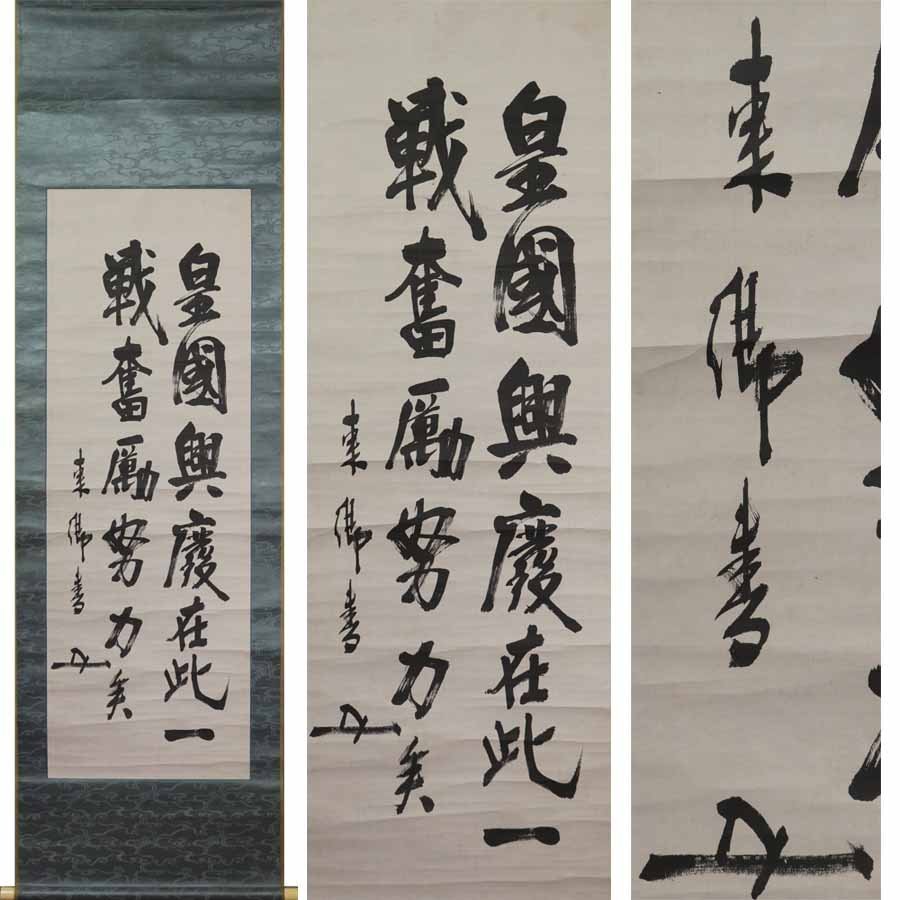 皇國興廢在此一
戰奮勵努力矣
東郷書
皇國興廢在此一
戰奮勵努力矣
東郷書
東郷書